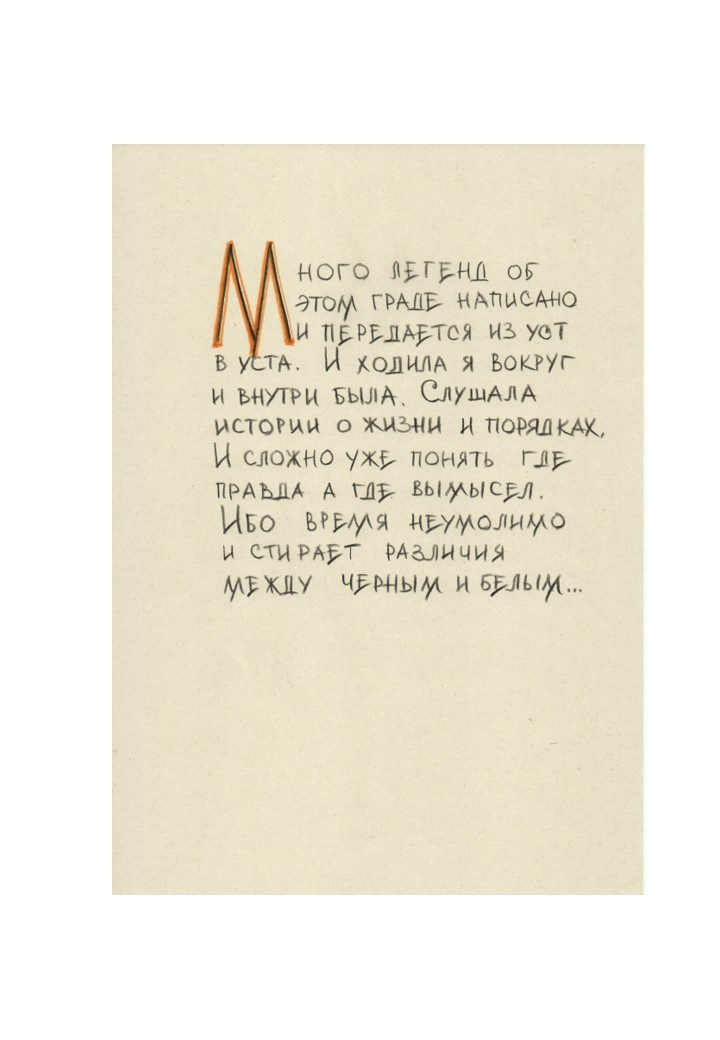 Много легенд об
этом граде написано
и передается из уст
в уста. И ходила я вокруг
и внутри была. Слушала
истории о жизни и порядках,
И сложно уже понять где
правда а где вымысел.
Ибо время неумолимо
и стирает различия
между черным и белым...